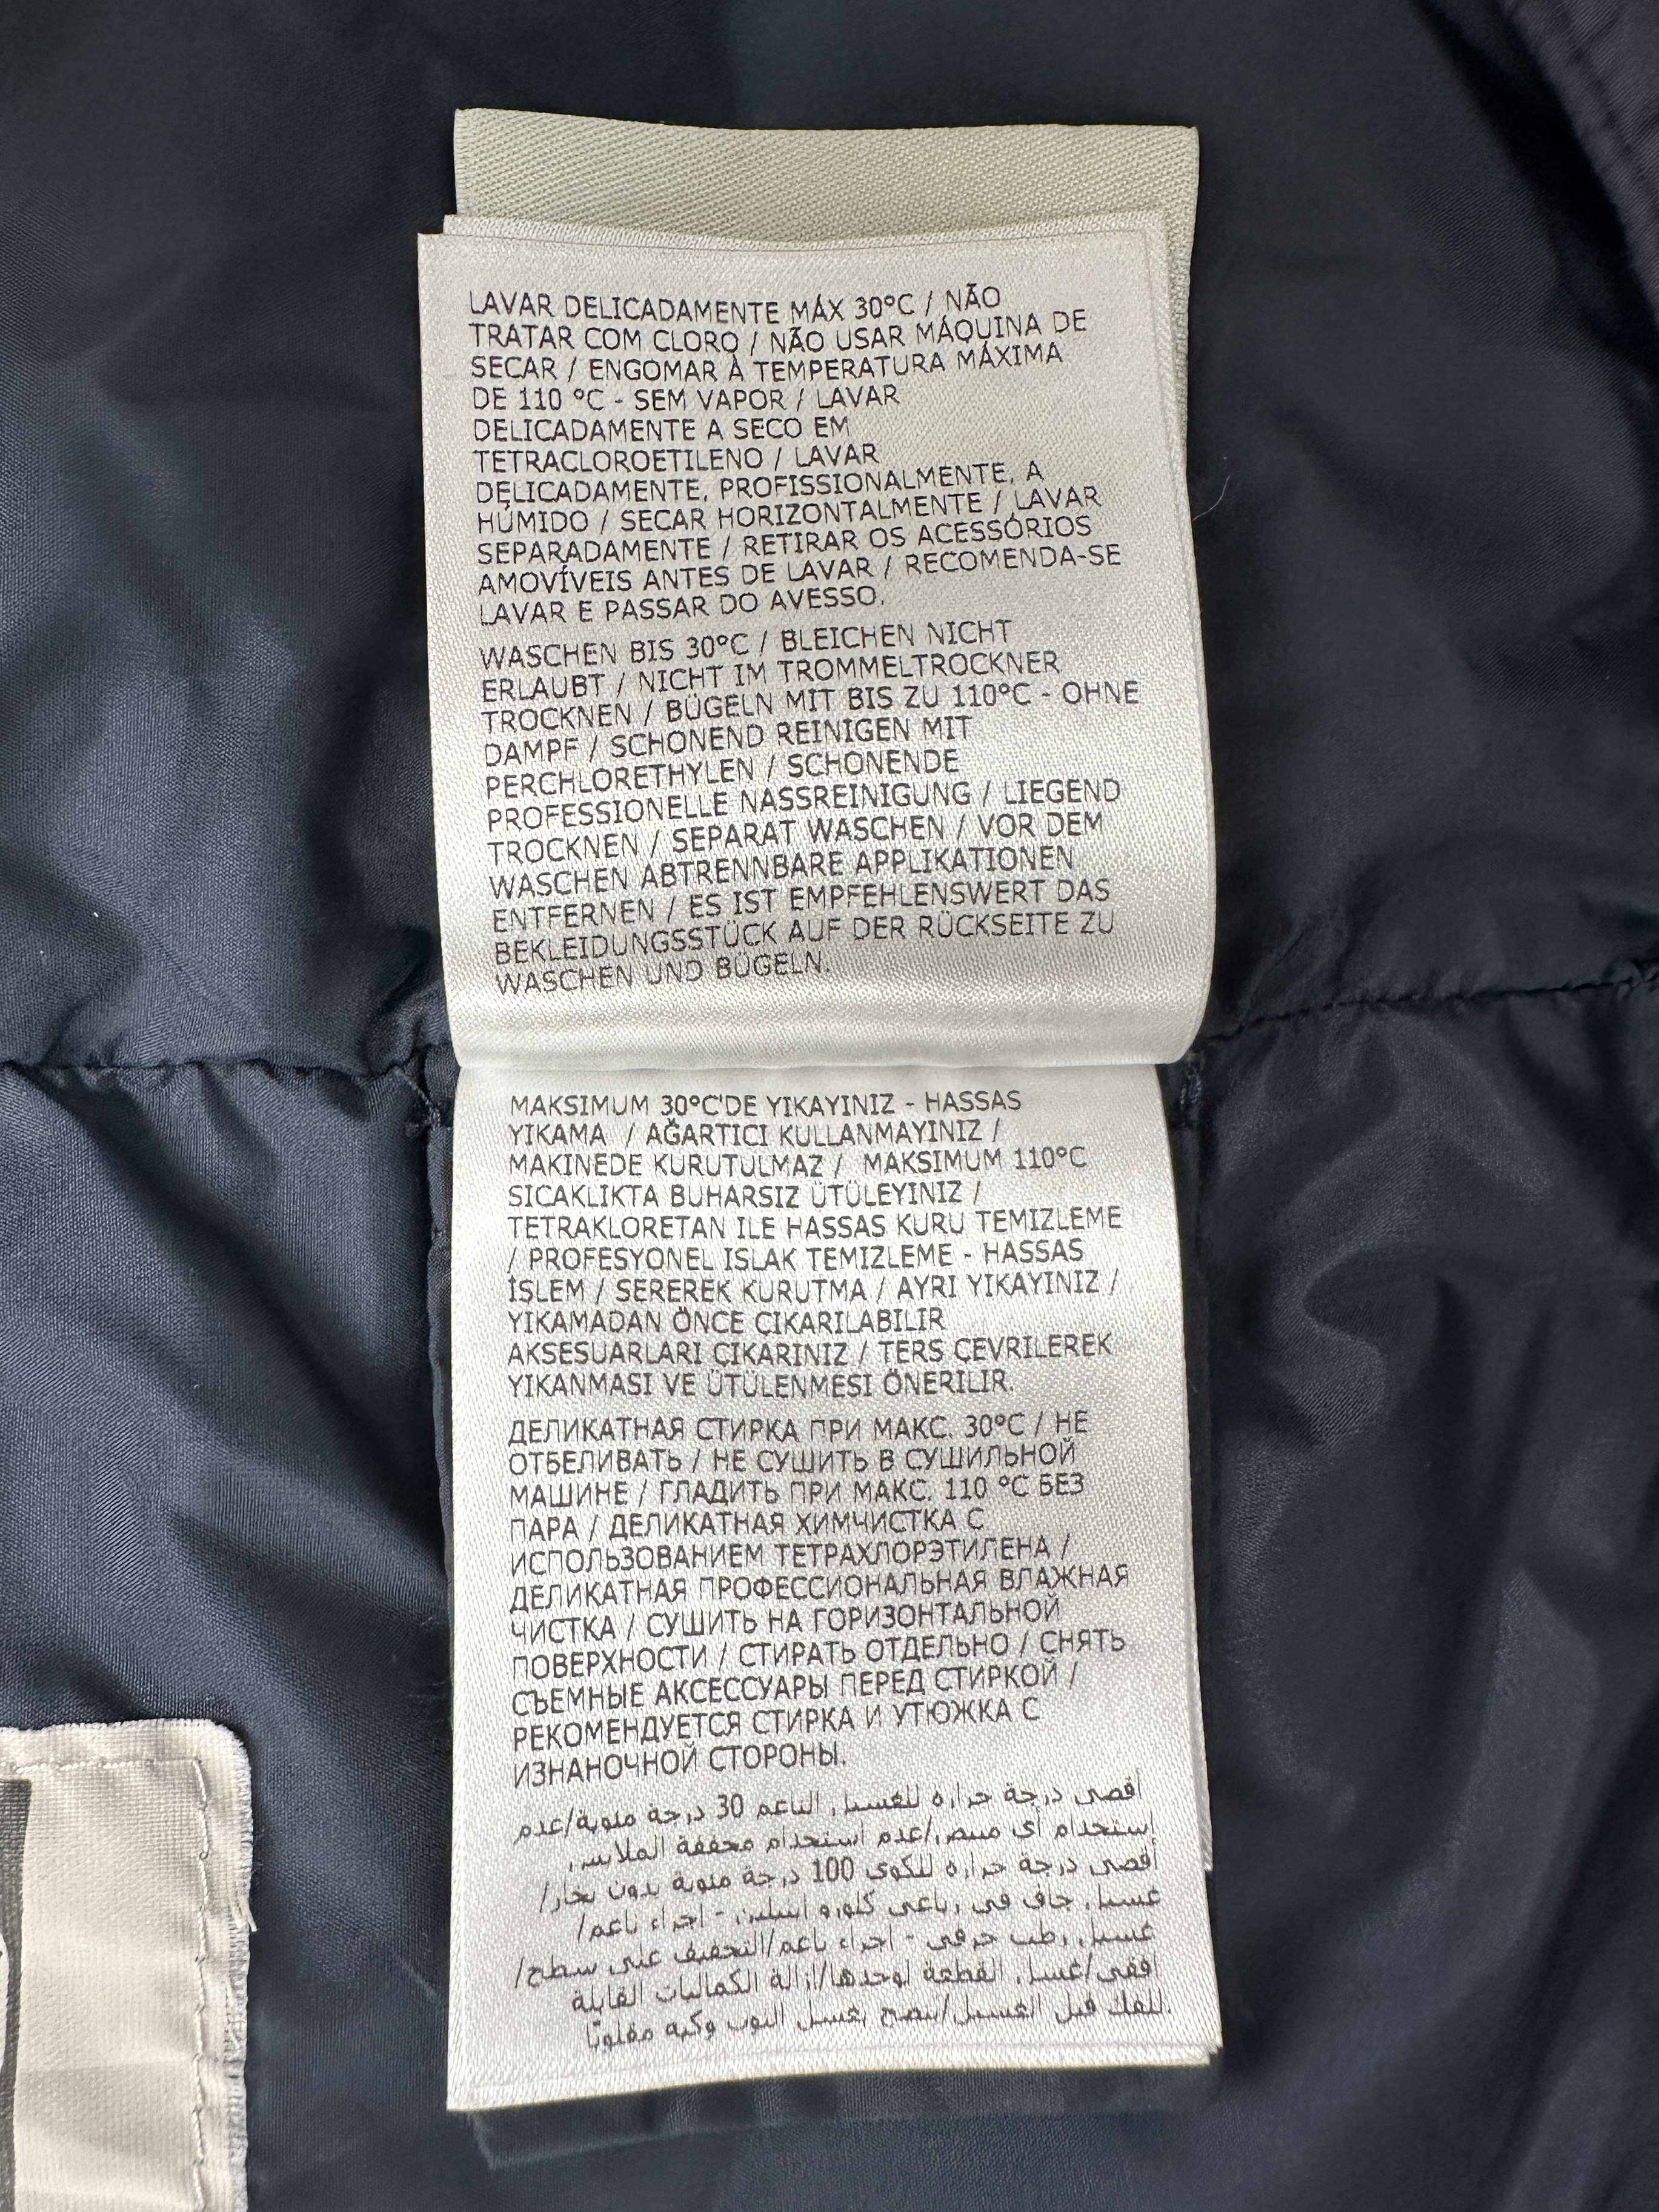 LAVAR DELICADAMENTE MÁX 30°C / NÃO
TRATAR COM CLORO / NÃO USAR MÁQUINA DE
SECAR / ENGOMAR À TEMPERATURA MÁXIMA
DE 110 °C - SEM VAPOR / LAVAR
DELICADAMENTE A SECO EM
TETRACLOROETILENO / LAVAR
DELICADAMENTE, PROFISSIONALMENTE, A
HÚMIDO / SECAR HORIZONTALMENTE / LAVAR
SEPARADAMENTE / RETIRAR OS ACESSÓRIOS
AMOVÍVEIS ANTES DE LAVAR / RECOMENDA-SE
LAVAR E PASSAR DO AVESSO.
WASCHEN BIS 30°C / BLEICHEN NICHT
ERLAUBT / NICHT IM TROMMELTROCKNER
TROCKNEN / BÜGELN MIT BIS ZU 110°C - OHNE
DAMPF / SCHONEND REINIGEN MIT
PERCHLORETHYLEN / SCHONENDE
PROFESSIONELLE NASSREINIGUNG / LIEGEND
TROCKNEN / SEPARAT WASCHEN / VOR DEM
WASCHEN ABTRENNBARE APPLIKATIONEN
ENTFERNEN / ES IST EMPFEHLENSWERT DAS
BEKLEIDUNGSSTÜCK AUF DER RÜCKSEITE ZU
WASCHEN UND BÜGELN.
MAKSIMUM 30°C'DE YIKAYINIZ - HASSAS
YIKAMA / AĞARTICI KULLANMAYINIZ /
MAKINEDE KURUTULMAZ / MAKSIMUM 110°C
SICAKLIKTA BUHARSIZ ÜTÜLEYINIZ /
TETRAKLORETAN ILE HASSAS KURU TEMIZLEME
/ PROFESYONEL ISLAK TEMIZLEME - HASSAS
İSLEM / SEREREK KURUTMA / AYRI YIKAYINIZ /
YIKAMADAN ÖNCE ÇIKARILABILIR
AKSESUARLARI ÇIKARINIZ / TERS ÇEVRILEREK
YIKANMASI VE ÜTÜLENMESI ÖNERILIR.
ДЕЛИКАТНАЯ СТИРКА ПРИ МАКС. 30°С / НЕ
ОТБЕЛИВАТЬ / НЕ СУШИТЬ В СУШИЛЬНОЙ
МАШИНЕ / ГЛАДИТЬ ПРИ МАКС. 110 °С БЕЗ
ПАРА / ДЕЛИКАТНАЯ ХИМЧИСТКА С
ИСПОЛЬЗОВАНИЕМ ТЕТРАХЛОРЭТИЛЕНА /
ДЕЛИКАТНАЯ ПРОФЕССИОНАЛЬНАЯ ВЛАЖНАЯ
ЧИСТКА / СУШИТЬ НА ГОРИЗОНТАЛЬНОЙ
ПОВЕРХНОСТИ / СТИРАТЬ ОТДЕЛЬНО / СНЯТЬ
СЪЕМНЫЕ АКСЕССУАРЫ ПЕРЕД СТИРКОЙ /
РЕКОМЕНДУЕТСЯ СТИРКА И УТЮЖКА С
ИЗНАНОЧНОЙ СТОРОНЫ.
أقصى درجة حراره للغسيل الناعم 30 درجة مئوية/عدم
إستخدام أى مبيض/عدم استخدام مجففة الملابس
أقصى درجة حراره للكوى 100 درجة مئوية بدون بخار/
غسيل جاف في رباعى كلورو ايثيلين - اجراء ناعم/
غسيل رطب حرفى - اجراء ناعم/التجفيف على سطح/
افقى/غسل القطعة لوحدها/ازالة الكماليات القابلة
للفك قبل الغسيل/ينصح بغسل الثوب وكيه مقلوبًا.